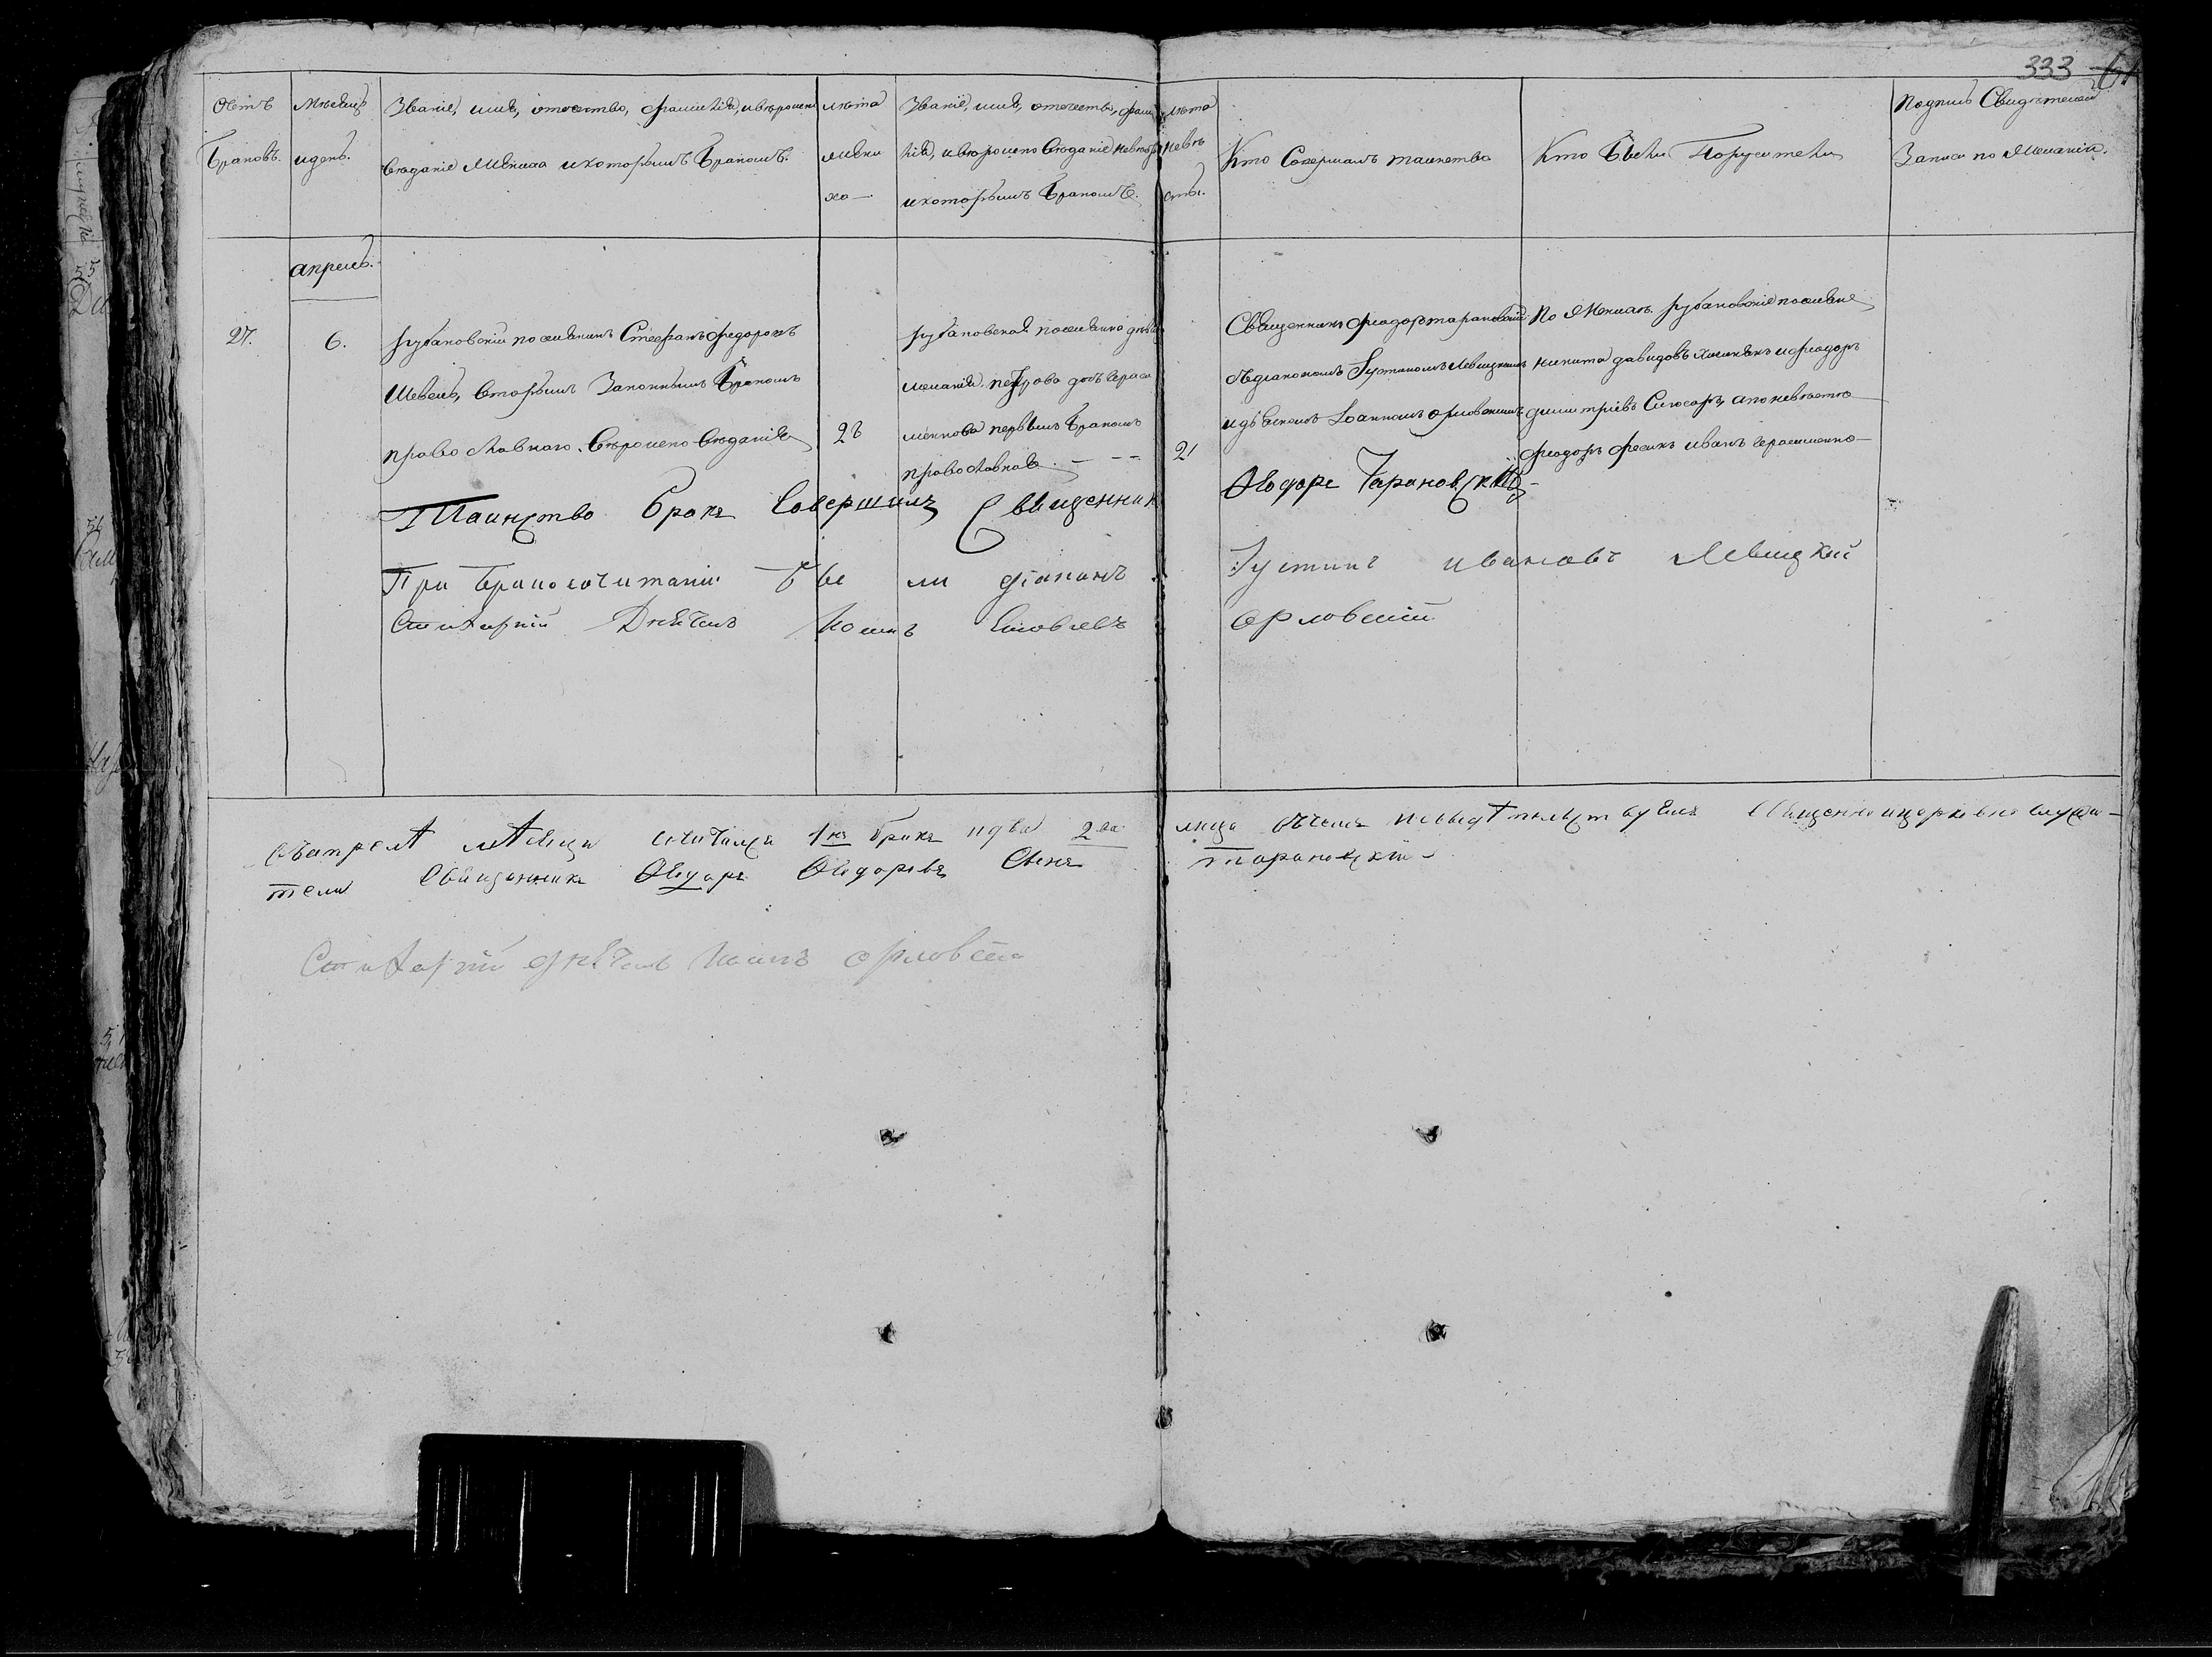 333 61
Счетъ
браковъ.
Мѣсяцъ
и день.
Званіе, имя, отечество, фамилія, и вѣроиспо
вѣданіе Жениха и которымъ бракомъ.
лѣта
жени
хо—
Званіе, имя, отечество, фами
лія, и вѣроиспо вѣданіе невѣсты
и которымъ бракомъ.
лѣта
невѣ
сты.
Кто Совершалъ таинство
Кто были Поручители
Подпись Свидѣтелей
Записи по Желанію.
апрель.
27.
6.
рубановскій поселянинъ Стефанъ федоровъ
Швецъ, вторымъ Законнымъ бракомъ
православнаго вѣроисповѣданія
28
рубановская поселянка дѣвица
меланія петрова дочь Гераси
менкова первымъ бракомъ
православная. — — —
21
Священникъ феодоръ тарановскій
съ діакономъ Іустиномъ Левицкимъ
и дьячкомъ Іоанномъ орловскимъ
По Женихѣ рубановскіе поселяне
никита давидовъ и феодоръ
димитріевъ Слюсарь, а по невѣстѣ
феодоръ фесикъ иванъ герасименко—
Таинство Брака Совершилъ Священникъ
Ѳеодоръ Тарановскій
При бракосочитаніи были діаконъ
Іустинъ ивановъ Левицкій
Стихарній Дьячекъ Иоанъ
орловскій
Въ апрелѣ мѣсяцѣ 1нъ бракъ и два 2ва
лица въ чемъ и свидѣтельствуемъ Священноицерковнослужи-
тели Священникъ Ѳеодоръ Ѳеодоровъ Сынъ
тарановскій
Стихарній дьячекъ Иоанъ орловскій